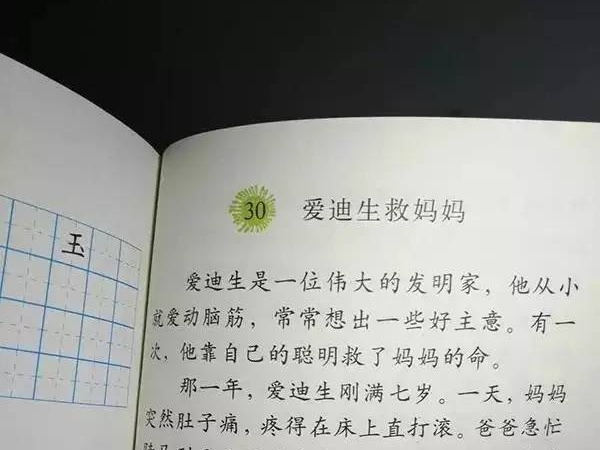 玉
30 爱迪生救妈妈
爱迪生是一位伟大的发明家，他从小
就爱动脑筋，常常想出一些好主意。有一
次，他靠自己的聪明救了妈妈的命。
那一年，爱迪生刚满七岁。一天，妈妈
突然肚子痛，疼得在床上直打滚。爸爸急忙